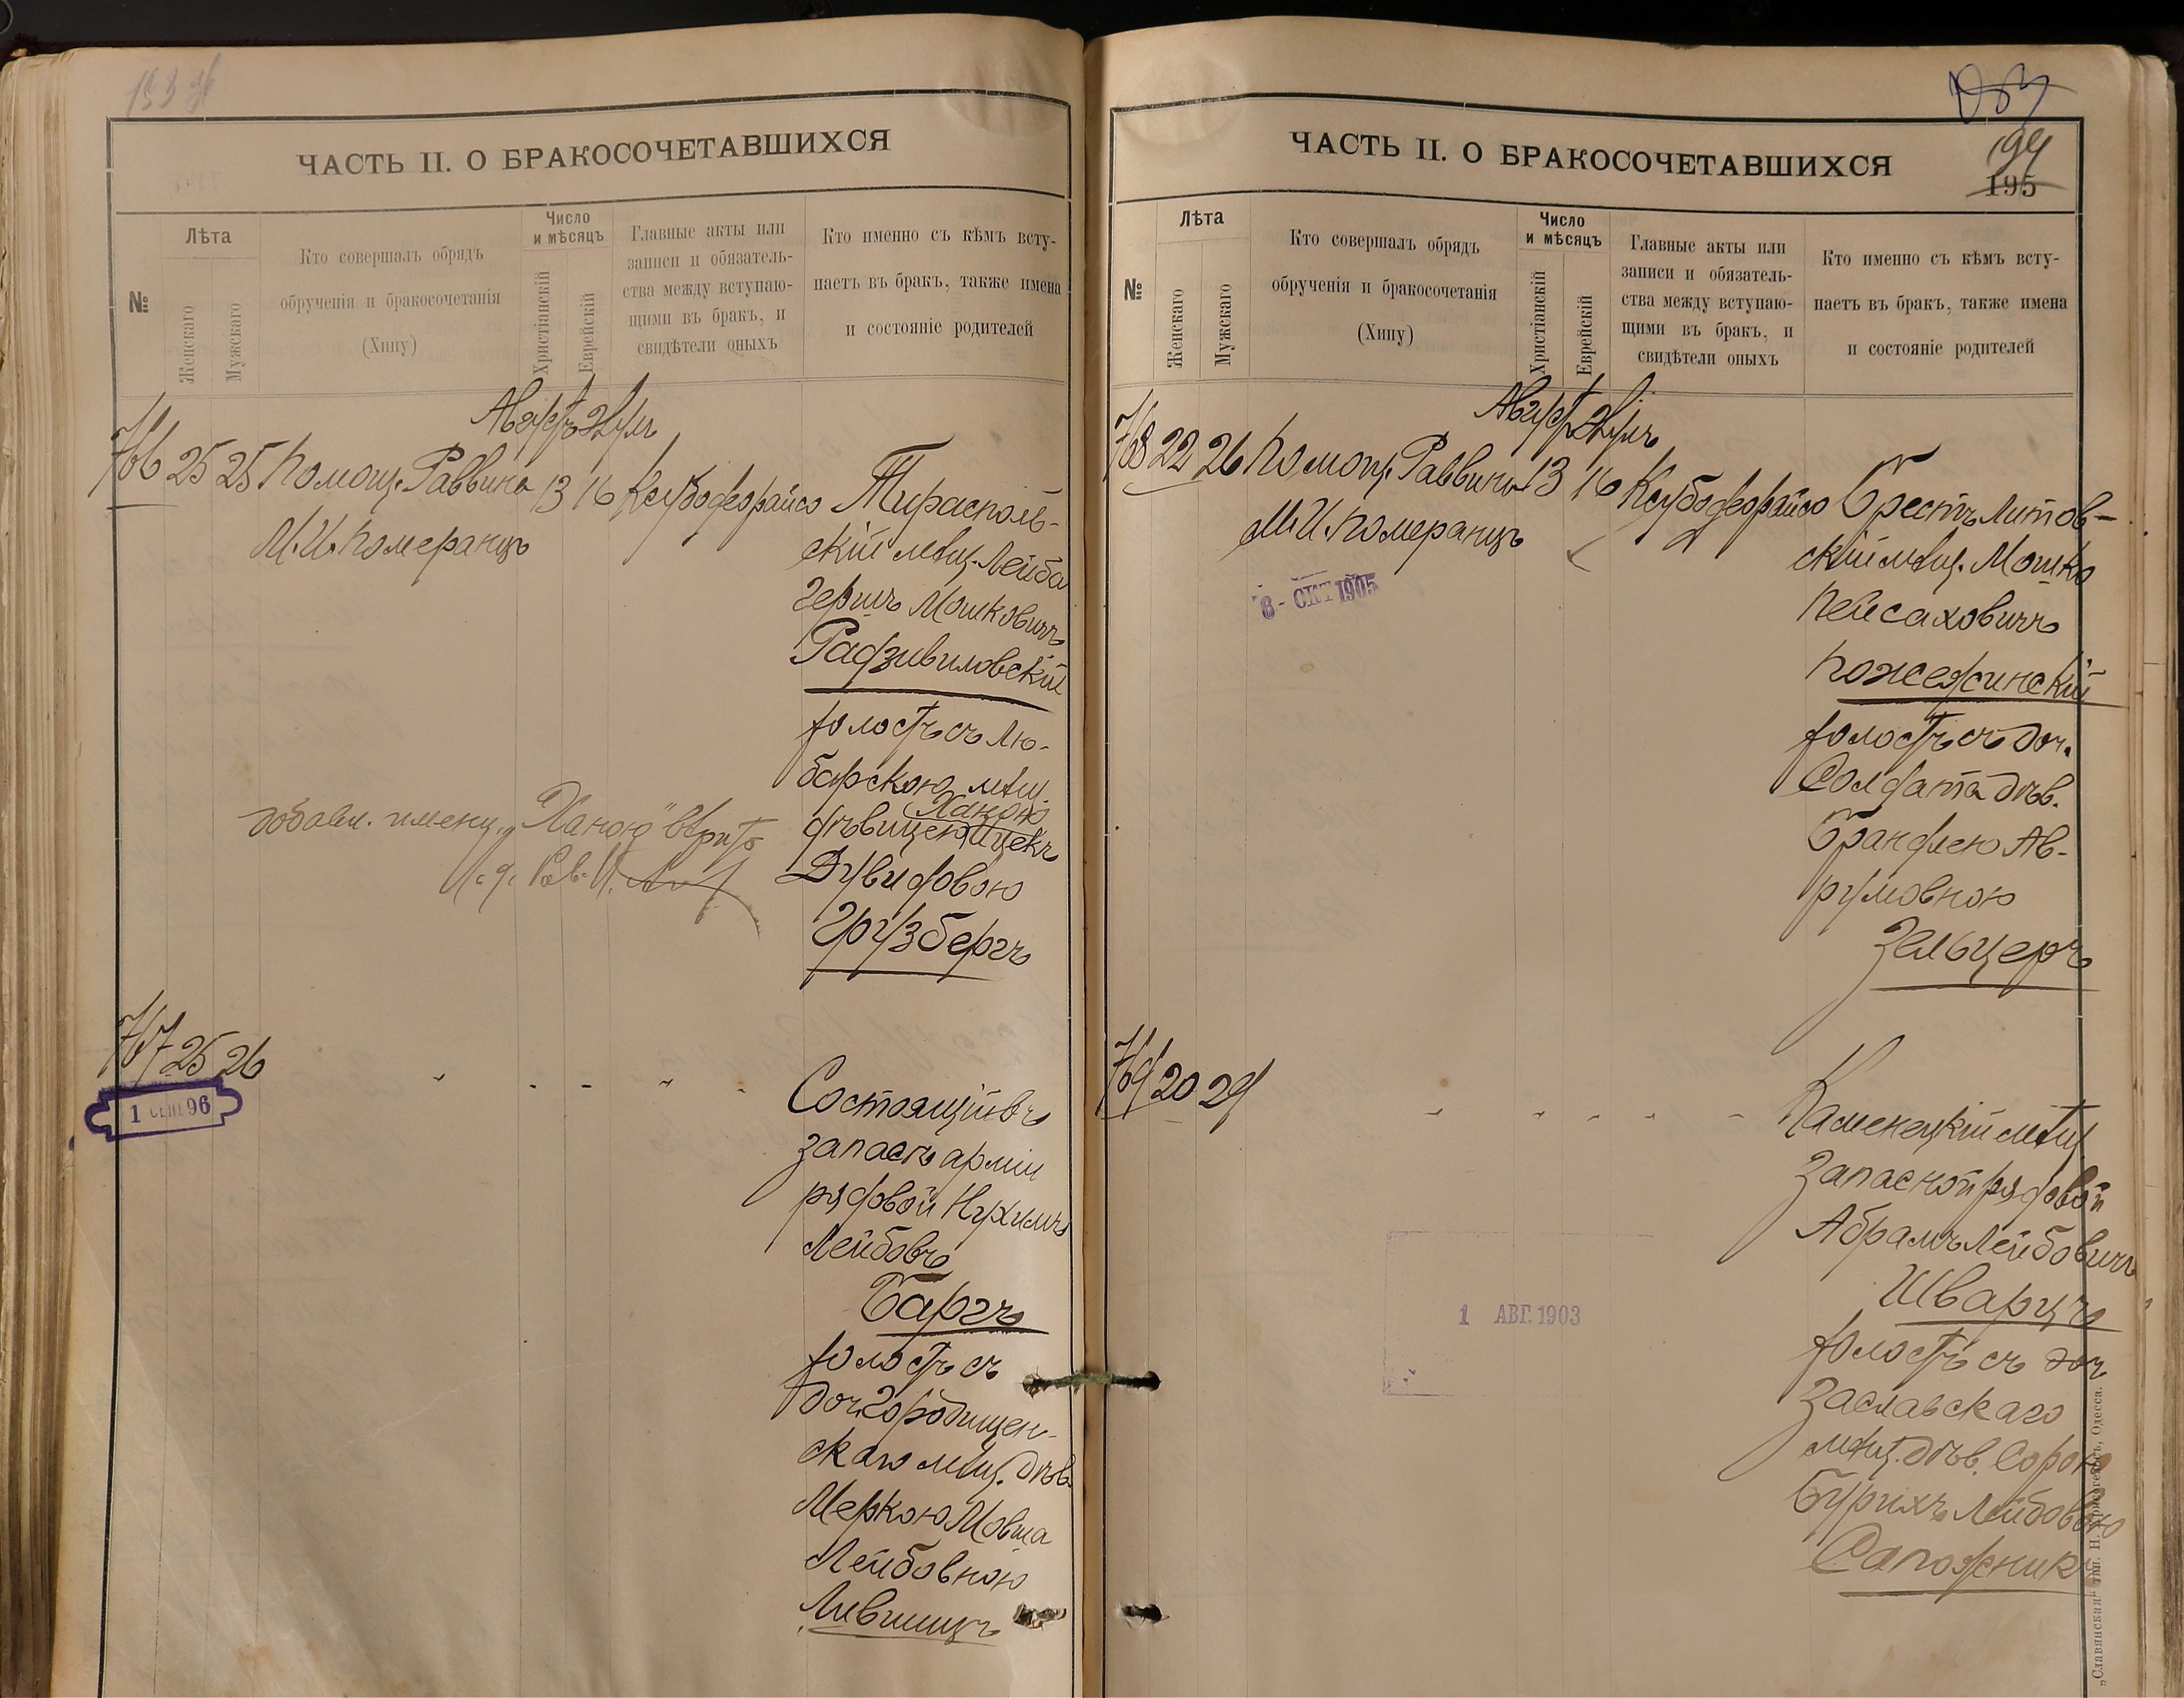 ЧАСТЬ II. О БРАКОСОЧЕТАВШИХСЯ
№
Лѣта
Женскаго
Мужскаго
Кто совершалъ обрядъ
обрученія и бракосочетанія
(Хипу)
Число
и мѣсяцъ
Христіанскій
Еврейскій
Главные акты или
записи и обязатель-
ства между вступаю-
щими въ бракъ, и
свидѣтели оныхъ
Кто именно съ кѣмъ всту-
паетъ въ бракъ, также имена
и состояніе родителей
Августъ Элулъ
766 25 25 Помощ. Раввина 13 16
М. И. Померанцъ
Тирасполь-
скій мѣщ. Лейба
Гершъ Мошковичъ
Радзивиловскій
холостъ съ Лю-
барскою мѣщ.
Ханою
дѣвицею Ицекъ
Дувидовою
Грузбергъ
добавл. именц. „Ханою“ вѣрить
И. д. Рав.
767 25 26
1 СЕНТ 96
Состоящій въ
запасѣ арміи
рядовой Нухимъ
Лейбовъ
Баргъ
холостъ съ
доч. Городищен-
скаго мѣщ. дѣв.
Меркою Мовша
Лейбовною
Лившицъ
ЧАСТЬ II. О БРАКОСОЧЕТАВШИХСЯ
194
195
№
Лѣта
Женскаго
Мужскаго
Кто совершалъ обрядъ
обрученія и бракосочетанія
(Хипу)
Число
и мѣсяцъ
Христіанскій
Еврейскій
Главные акты или
записи и обязатель-
ства между вступаю-
щими въ бракъ, и
свидѣтели оныхъ
Кто именно съ кѣмъ всту-
паетъ въ бракъ, также имена
и состояніе родителей
Августъ Элулъ
768 22 26 Помощ. Раввина 13 16
М. И. Померанцъ
8 - ОКТ 1905
Брестъ Литов-
скій мѣщ. Мошко
Пейсаховичъ
Пожежинскій
холостъ съ доч.
Солдата дѣв.
Брандлею Ав-
румовною
Зельцеръ
769 20 29
1 АВГ. 1903
Каменецкій мѣщ.
Запасной рядовой
Абрамъ Лейбовичъ
Шварцъ
холостъ съ доч.
Заславскаго
мѣщ. дѣв. Сорою
Бурихъ Лейбовною
Сапожникъ
„Славянская“ тип. Н. Хрисогелосъ, Одесса.